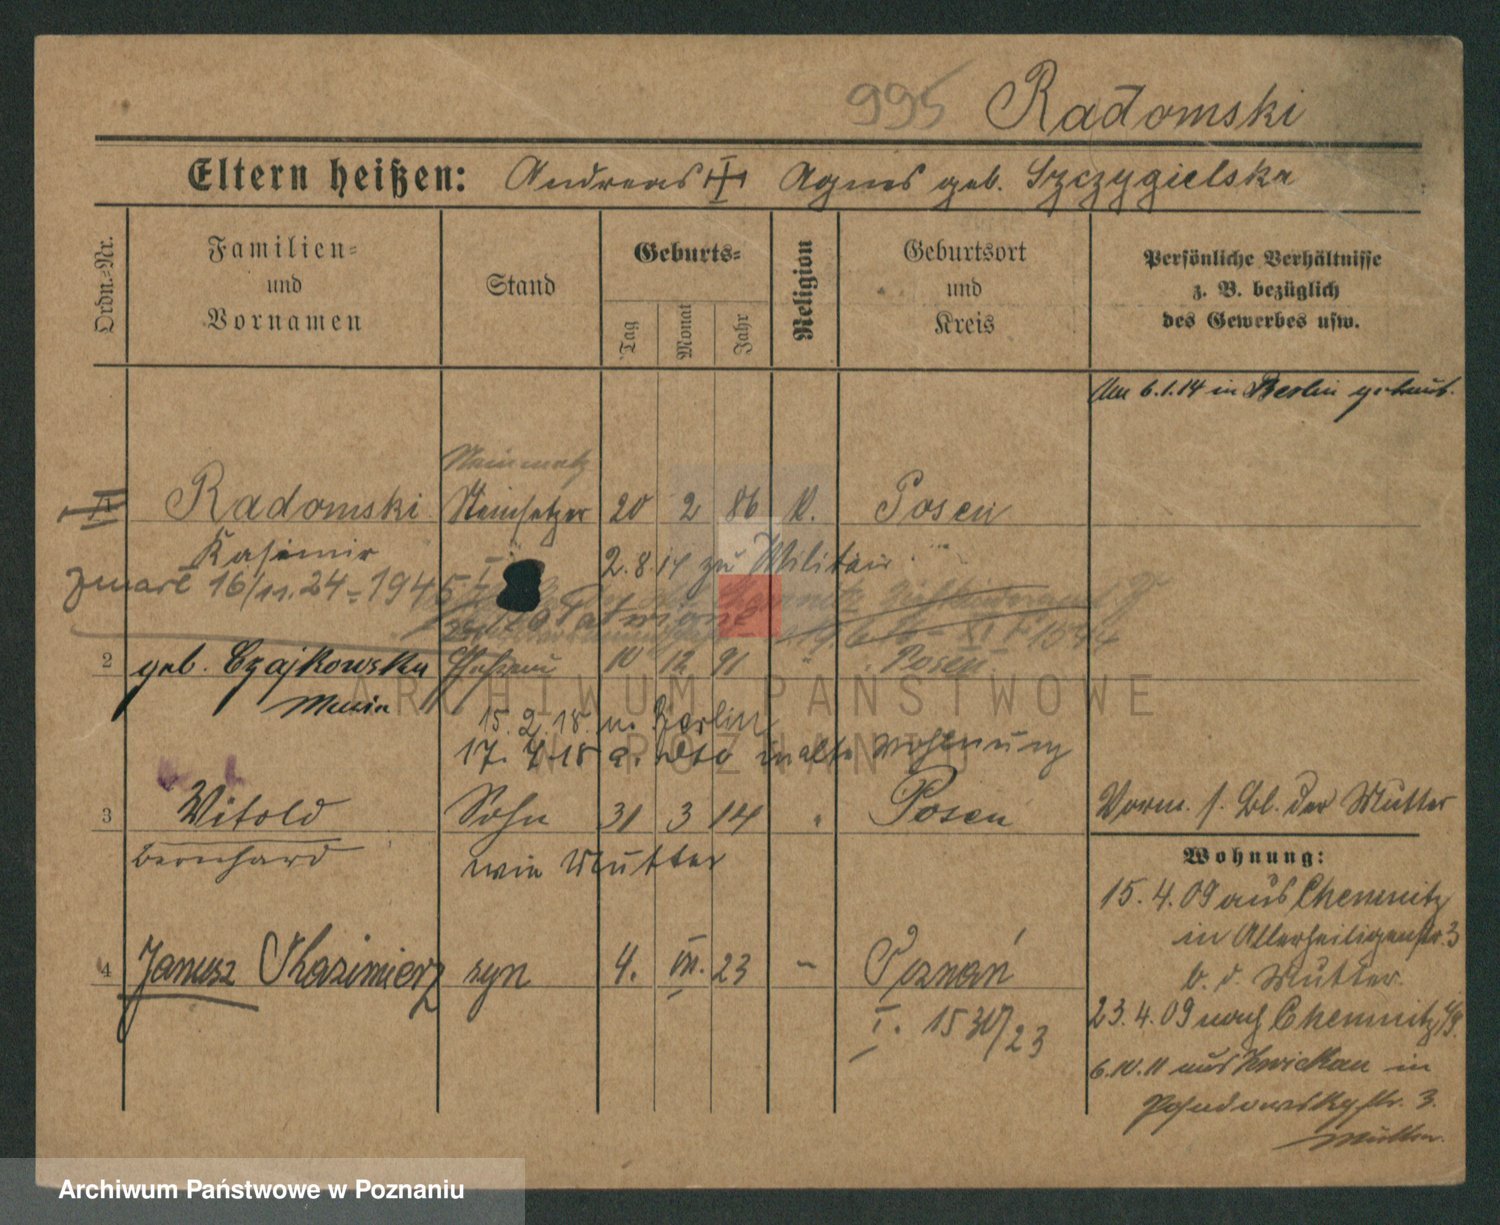 995 Radomski
Eltern heißen: Andreas Agnes geb. Szczygielska
Ordn.-Nr.
Familien-
und
Vornamen
Stand
Geburts-
Tag
Monat
Jahr
Religion
Geburtsort
und
Kreis
Persönliche Verhältnisse
z. B. bezüglich
des Gewerbes usw.
Am 6.1.14 in Berlin getraut.
Steinmetz
1 Radomski Steinsetzer 20 2 86 K. Posen
Kasimir 2.8.14 zu Militair
zmarł 16/11.24 - 1945
2 geb. Czajkowska 10 12 91 " " Posen.
15.2.18. n. Berlin
17. 4. 18 a. dto in alte Wohnung
3 Witold Sohn 31 3 14 " Posen Vorm. s. Bl. der Mutter
Bernhard wie Mutter
Wohnung:
15.4.09 aus Chemnitz
in Allerheiligenstr. 3
b. d. Mutter.
4 Janusz Kazimierz syn 4. VII. 23 - Poznań
I. 1530/23
23.4.09 nach Chemnitz
6.10.11 aus Zwickau in
Posadowskystr. 3.
Mutter.
ARCHIWUM PAŃSTWOWE
W POZNANIU
Archiwum Państwowe w Poznaniu